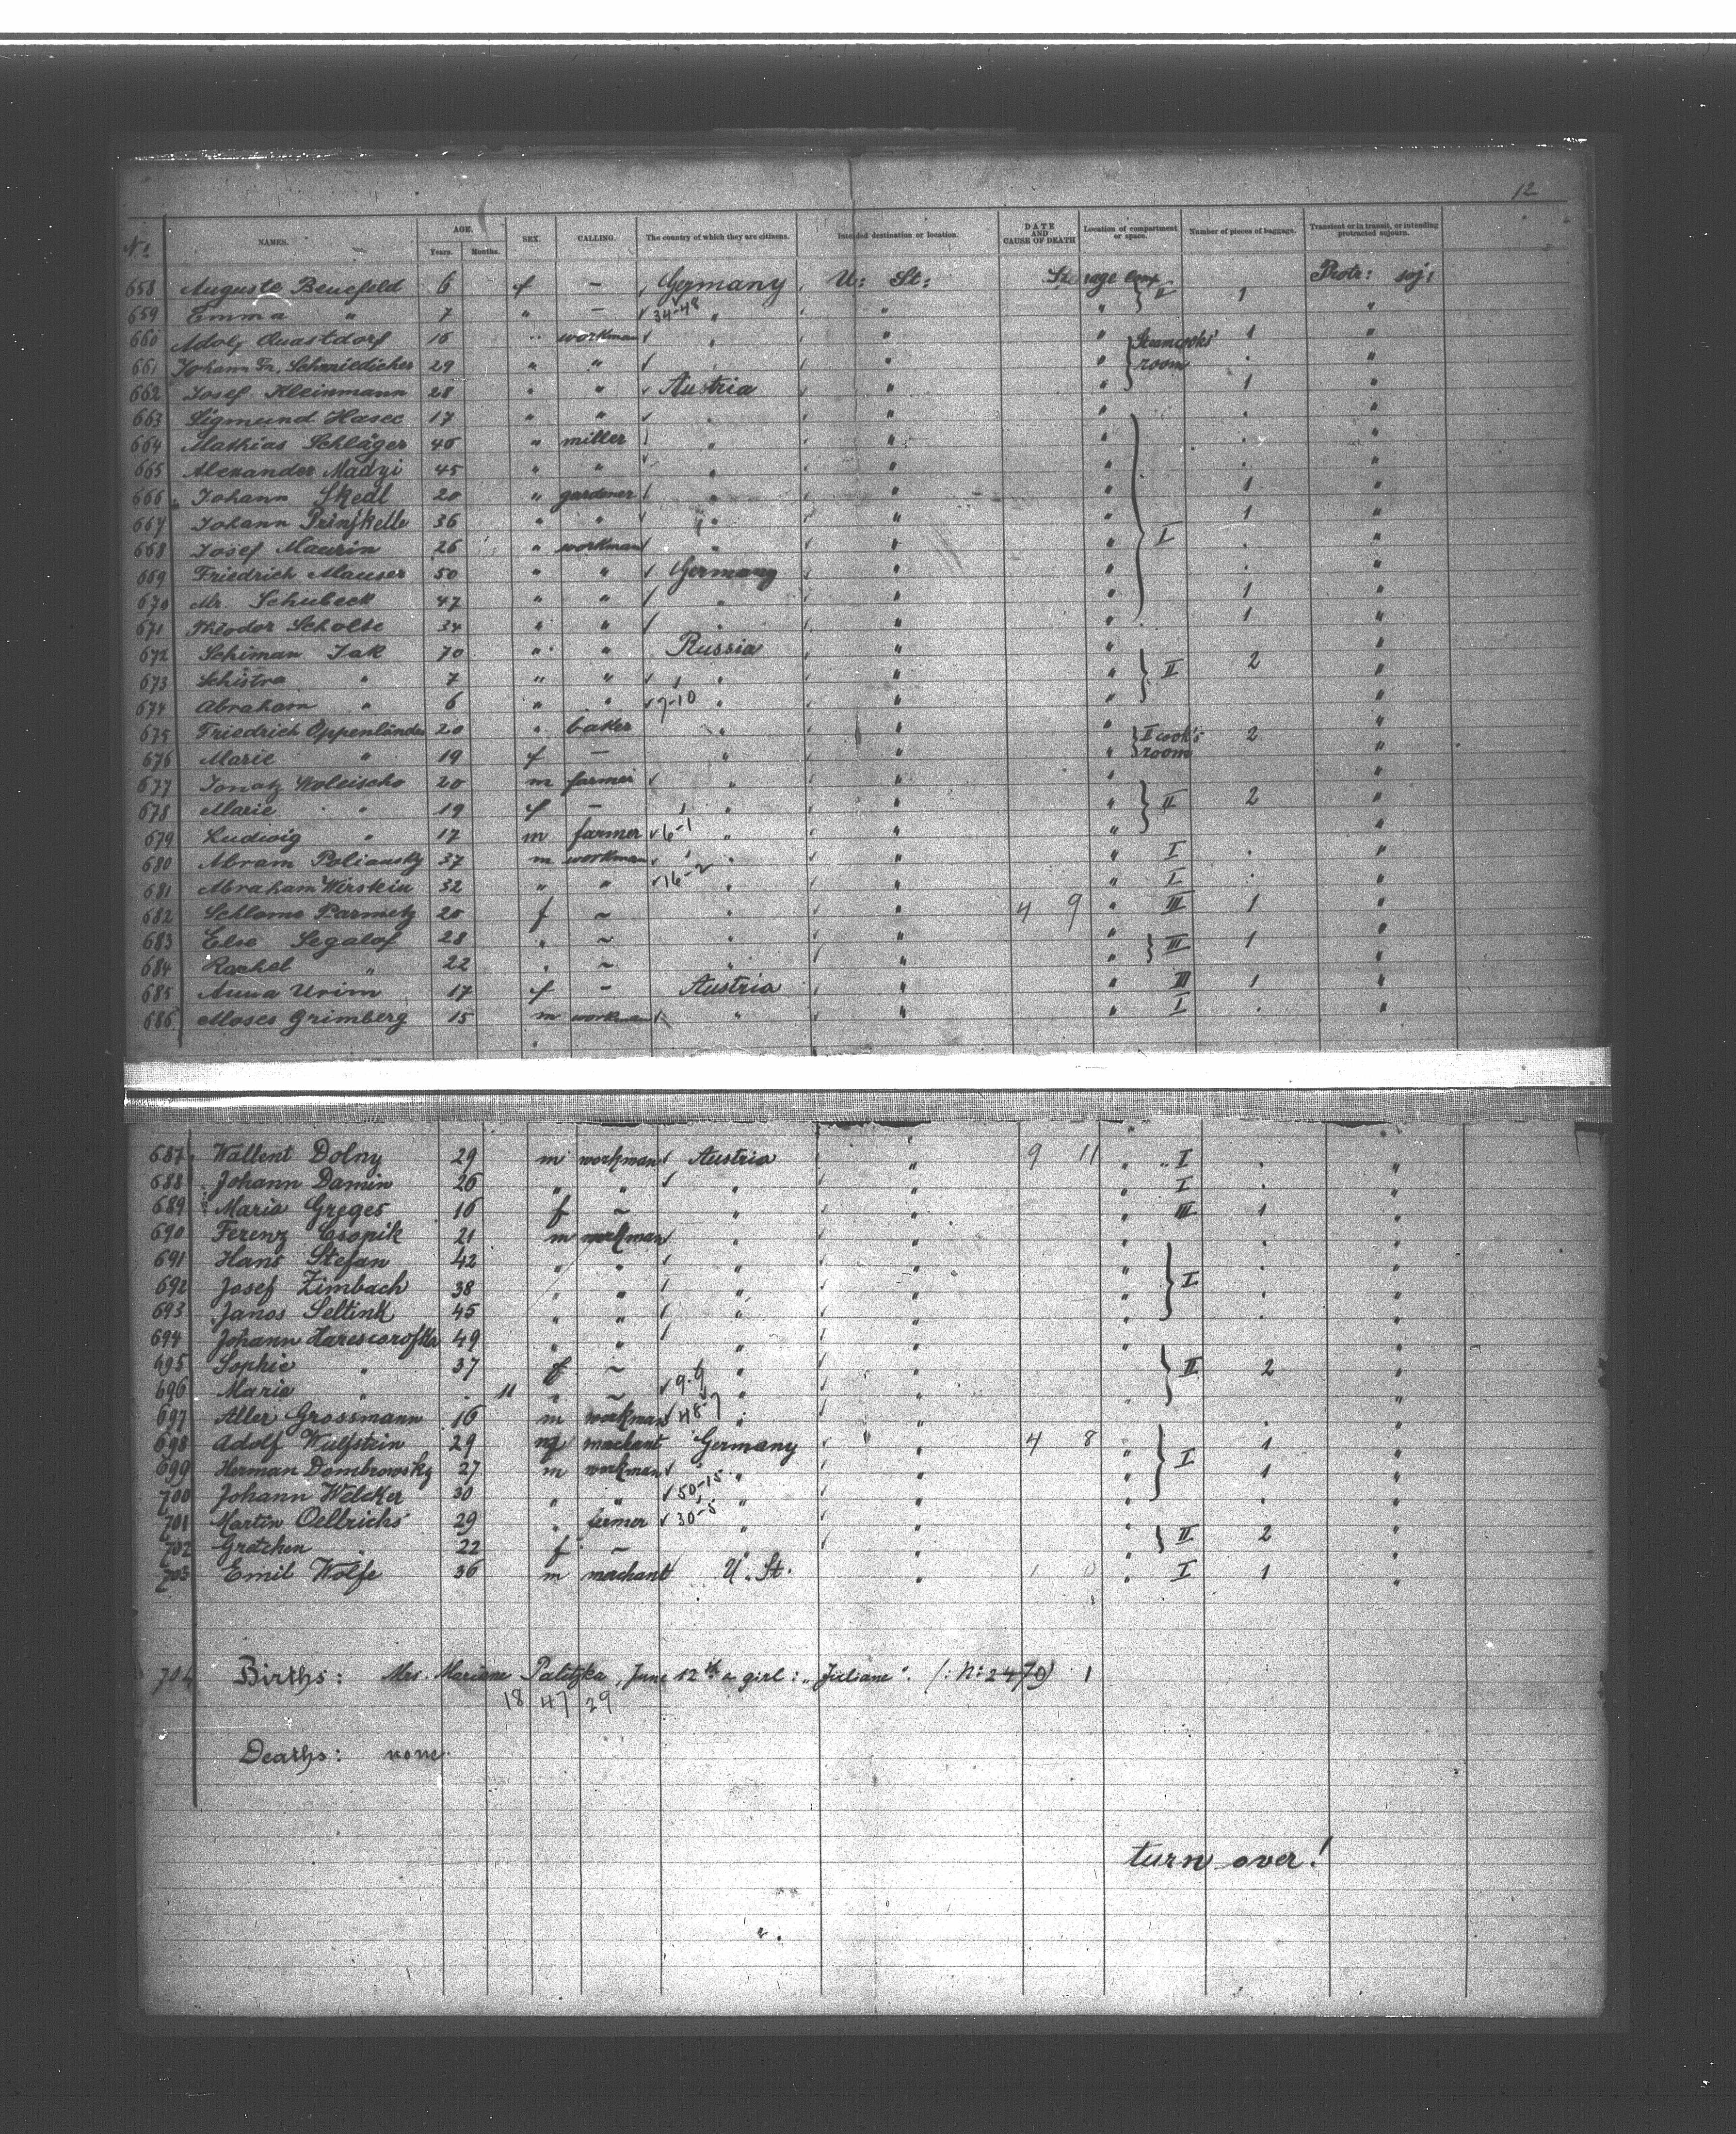 12
No. NAMES. AGE. Years. Months. SEX. CALLING. The country of which they are citizens. Intended destination or location. DATE AND CAUSE OF DEATH Location of compartment or space. Number of pieces of baggage. Transient or in transit, or intending protracted sojourn.
658 Auguste Benefeld 6 f — Germany U: St: II 1 Protr: soj:
659 Emma " 7 " — 34-48 " " " "
660 Adolf Quastdorf 16 " workman " " " Steamcooks' 1 "
661 Johann Fr. Schmiedicher 29 " " " " room . "
662 Josef Kleinmann 28 " " Austria " " 1 "
663 Sigmund Hasec 17 " " " " " . "
664 Mathias Schläger 40 " miller " " " . "
665 Alexander Madyi 45 " " " " " . "
666 Johann Skedl 20 " gardener " " " 1 "
667 Johann Prinskelle 36 " " " " " 1 "
668 Josef Maurin 26 " workman " " " I . "
669 Friedrich Mauser 50 " " Germany " " . "
670 Mr. Schubeck 47 " " " " " 1 "
671 Theodor Scholte 34 " " " " " 1 "
672 Schiman Jak 70 " " Russia " " 2 "
673 Schistra " 7 " " " " " II "
674 Abraham " 6 " " 7-10 " " " "
675 Friedrich Oppenländer 20 " baker " " " II cook's 2 "
676 Marie " 19 f — " " " room "
677 Ignatz Woleischo 20 m farmer " " " "
678 Marie " 19 f — " " " II 2 "
679 Ludwig " 17 m farmer 6-1 " " " "
680 Abram Poliansky 37 m workman " " " I . "
681 Abraham Wirstein 32 " " 16-2 " " " I . "
682 Schlome Parmetz 20 f ~ " " 4 9 " III 1 "
683 Else Segalof 28 " ~ " " " III 1 "
684 Rachel " 22 " ~ " " " "
685 Anna Urim 17 f - Austria " " III 1 "
686 Moses Grimberg 15 m workman " " " I . "
687 Wallent Dolny 29 m workman Austria " 9 11 " " I . "
688 Johann Damin 26 " " " " " I . "
689 Maria Greges 16 f ~ " " " III 1 "
690 Ferenz Csopik 21 m workman " " " . "
691 Hans Stefan 42 " " " " " . "
692 Josef Zimbach 38 " " " " " I . "
693 Janos Seltink 45 " " " " " . "
694 Johann 49 " " " " "
695 Sophie " 37 f ~ " " II 2 "
696 Maria " . 11 " ~ 9-9 " " "
697 Aller Grossmann 16 m workman 48-7 " " . "
698 Adolf Wulfstein 29 m machant Germany " 4 8 " 1 "
699 Herman Dombrowsky 27 m workman " " " I 1 "
700 Johann Welcker 30 " " 50-15 " " " . "
701 Martin Oellrichs 29 " farmer 30-5 " " "
702 Gretchen " 22 f ~ " " " II 2 "
703 Emil Wolfe 36 m machant U. St. " 1 0 " I 1 "
704 Births: Mrs. Mariane Palitzka, June 12th a girl: "Juliane". (: No: 2470) 1
18 47 29
Deaths: none.
turn over!